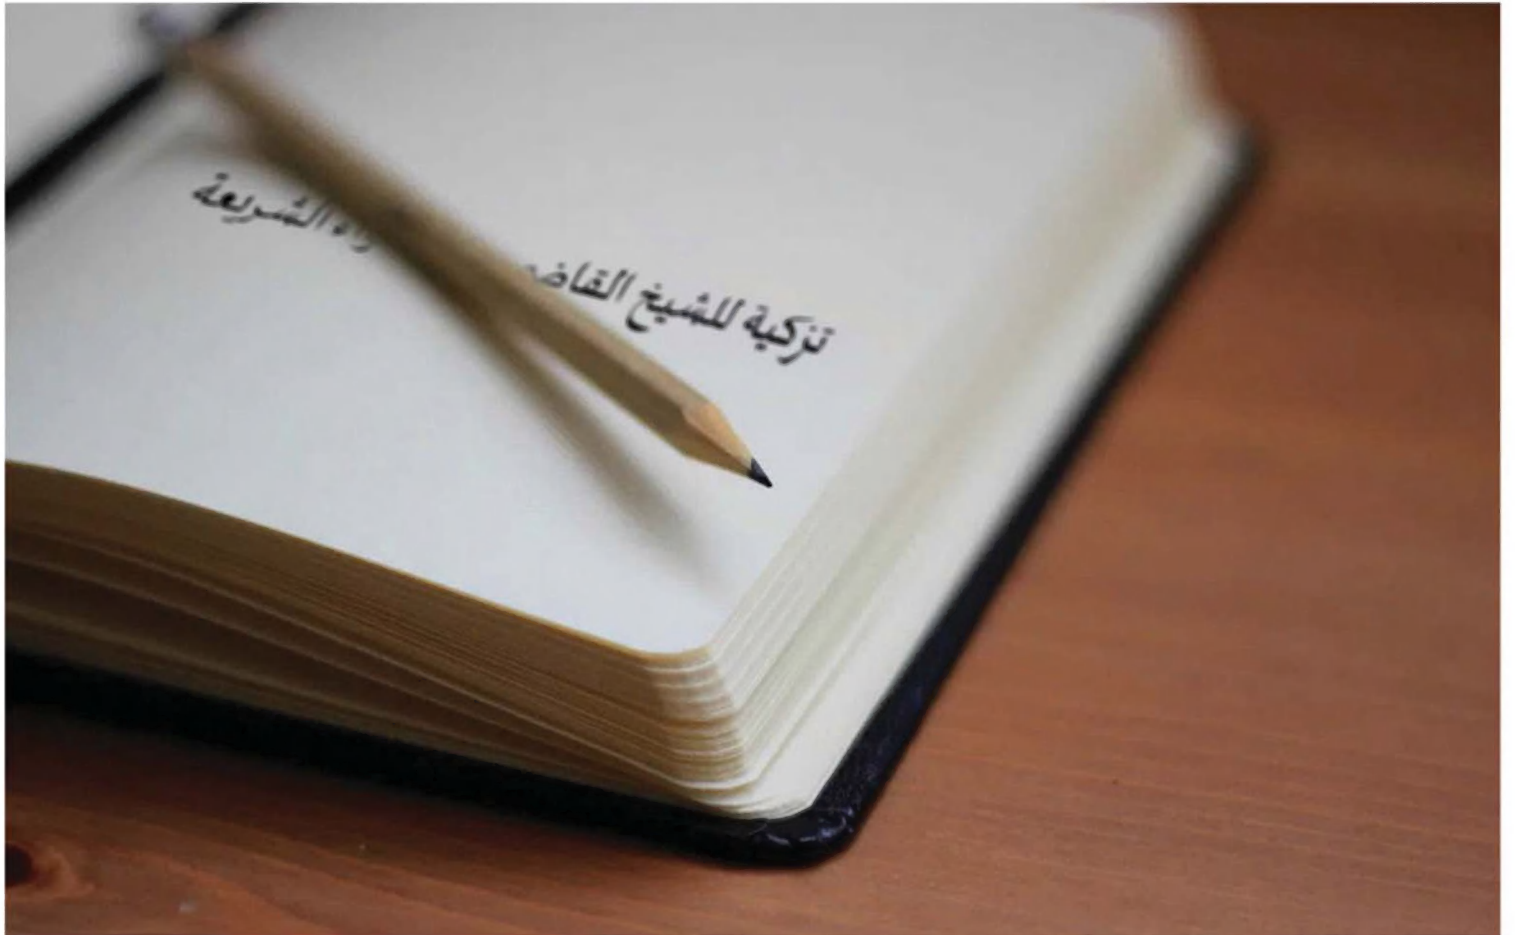 تزكية للشيخ القاضي الشريعة